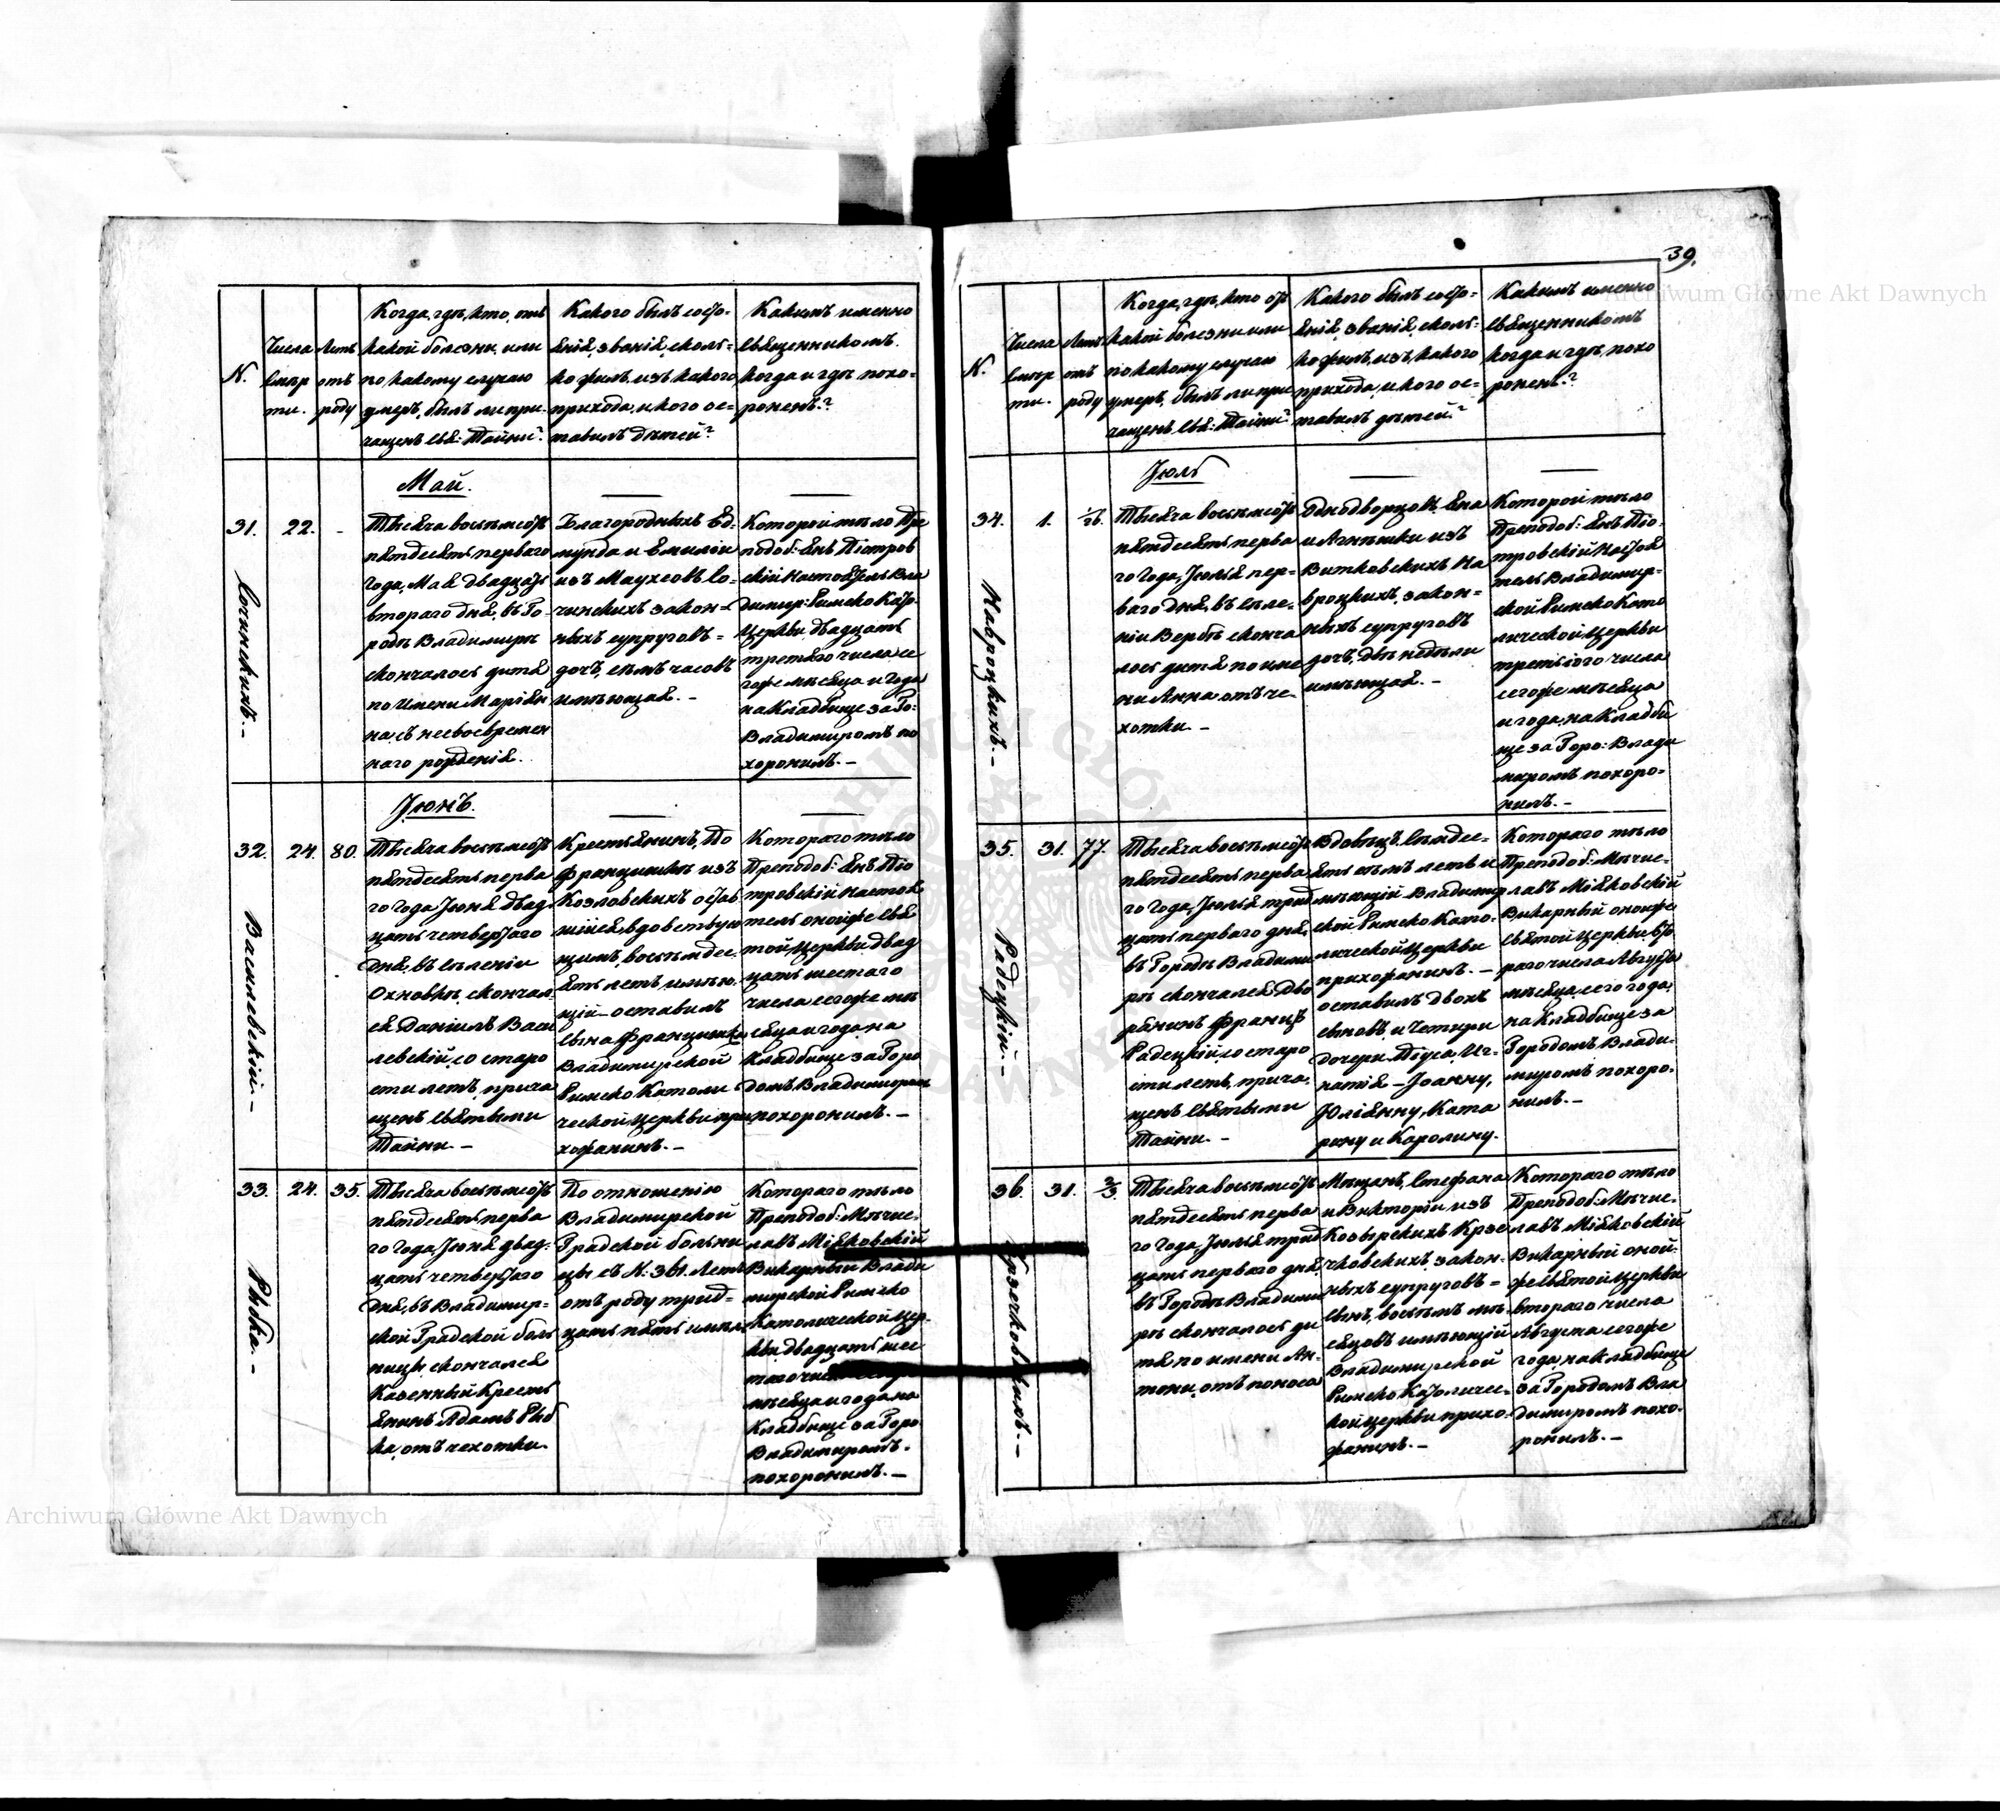 39.
Archiwum Główne Akt Dawnych
N.
Числа смер ти.
Летъ отъ роду
Когда, гдѣ, кто, отъ
какой болезни или
по какому случаю
умеръ, былъ ли при-
чащенъ Свя: Тайни?
Какого былъ состо-
янія, званія, сколь-
ко жилъ, изъ какого
прихода, и кого ос-
тавилъ дѣтей?
Какимъ именно
Священникомъ
когда и гдѣ похо-
роненъ?
Май.
31.
22.
-
Сочинскихъ. -
Тысяча восемьсотъ
пятдесятъ перваго
года, Мая двадцать
втораго дня, въ Го-
родѣ Владимирѣ
скончалось дитя
по имени Маріян
на, съ несвоевремен
наго рожденія.
Благородныхъ Ед-
мунда и Емиліи
изъ Маухсовъ Со-
чинскихъ закон-
ныхъ супруговъ =
дочь, семь часовъ
имѣющая. -
Которой тѣло Пре
подоб: Янъ Піотров
скій Настоятель Вла
димир: Римско Като.
Церкви двадцать
третяго числа се
гоже мѣсяца и года
на Кладбище за Го:
Владимиромъ по
хоронилъ. -
Іюнь.
32.
24.
80.
Василевскій. -
Тысяча восемьсотъ
пятдесятъ перва
го года Іюня двад
цать четвертаго
дня, въ селеніи
Охновкѣ, скончал
ся Даніилъ Васи
левскій, со старо
сти летъ, прича
щенъ Святыми
Тайни. -
Крестьянинъ, По
Францишкѣ изъ
Козловскихъ остав
шійся вдовствую
щимъ, восемдес-
ятъ летъ имѣю
щій - оставилъ
сына Францишка
Владимирской
Римско Католи
ческой Церкви при
хожанинъ. -
Котораго тѣло
Преподоб: Янъ Піо
тровскій Настоя
тель онойже Свя
той Церкви двад
цать шестаго
числа сегоже мѣ
сяца и года на
Кладбище за Горо
домъ Владимиром
похоронилъ. -
33.
24.
35.
Рыбка. -
Тысяча восемьсотъ
пятдесятъ перва
го года, Іюня двад-
цать четвертаго
дня, въ Владимир-
ской Градской боль
ницѣ скончался
Казенный Крестъ
янинъ Адамъ Рыб
ка, отъ чехотки.
По отношенію
Владимирской
Градской больни
цы съ N: 361. Летъ
отъ роду трид-
цать пять имѣлъ
Котораго тѣло
Преподоб: Мѣчис-
лавъ Міяковскій
Викарный Влади
мирской Римско
Католической Цер-
кви, двадцать шес
таго
мѣсяца и года на
Кладбище за Горо
Владимиромъ.
похоронилъ. -
N.
Числа смер ти.
Летъ отъ роду
Когда, гдѣ, кто отъ
какой болезни или
по какому случаю
умеръ, былъ ли при
чащенъ Свя: Тайни?
Какого былъ состо-
янія, званія, сколь-
ко жилъ, изъ какого
прихода, и кого ос-
тавилъ дѣтей?
Какимъ именно
Священникомъ
когда и гдѣ похо
роненъ?
Іюль
34.
1.
1/26.
Навроцкихъ. -
Тысяча восемьсотъ
пятдесятъ перва
го года, Іюля пер-
ваго дня, въ селе-
ніи Вербѣ сконча
лось дитя по име
ни Анна отъ че-
хотки. -
Однодворцовъ Яна
и Агнѣшки изъ
Витковскихъ На
вроцкихъ, закон-
ныхъ супруговъ
дочь, двѣ недѣли
имѣющая. -
Которой тѣло
Преподоб: Янъ Піо-
тровскій Настоя
тель Владимир-
ской Римско Като
лической Церкви
третьяго числа
сегоже мѣсяца
и года, на Кладби
ще за Горо: Влади
миромъ похоро-
нилъ. -
35.
31.
77.
Радецкій. -
Тысяча восемьсотъ
пятдесятъ перва
го года, Іюля трид
цать перваго дня,
въ Городѣ Владими
рѣ скончался Дво
рянинъ Францъ
Радецкій, со старо
сти летъ, прича-
щенъ Святыми
Тайни. -
Вдовецъ, семдес-
ятъ семь летъ и
мѣющій - Владимир
ской Римско Като-
лической Церкви
прихожанинъ. -
оставилъ двохъ
сыновъ и четири
дочери, Піуса, Иг-
натія - Іоанну,
Юліянну, Ката
рину и Каролину.
Котораго тѣло
Преподоб: Мѣчис-
лавъ Міяковскій
Викарный онойже
Святой Церкви, вто
раго числа Августа
мѣсяца, сего года,
на Кладбище за
Городомъ Влади-
миромъ похоро-
нилъ. -
36.
31.
2/3.
Крзечковскихъ. -
Тысяча восемьсотъ
пятдесятъ перва
го года, Іюля трид
цать перваго дня,
въ Городѣ Владими
рѣ скончалось ди
тя по имени Ан-
тони, отъ поноса
Мѣщанъ, Стефана
и Викторіи изъ
Козырскихъ Крзе
чковскихъ, закон-
ныхъ супруговъ =
сынъ, восемь мѣ-
сяцовъ имѣющій
Владимирской
Римско Католичес-
кой Церкви прихо-
жанинъ. -
Котораго тѣло
Преподоб: Мѣчис-
лавъ Міяковскій
Викарный оной-
же Святой Церкви
втораго числа
Августа сегоже
года, на Кладбище
за Городомъ Вла
димиромъ похо-
ронилъ. -
Archiwum Główne Akt Dawnych